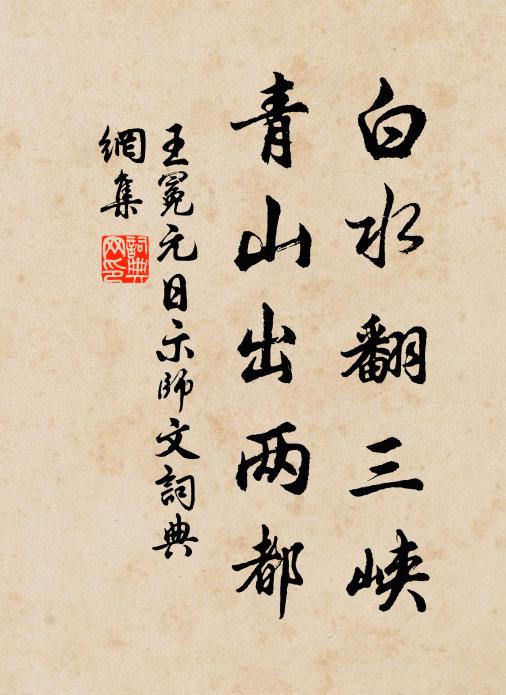 白水翻三峡
青山出两都
王冕元日示師文詞典
網集
詞典
网印